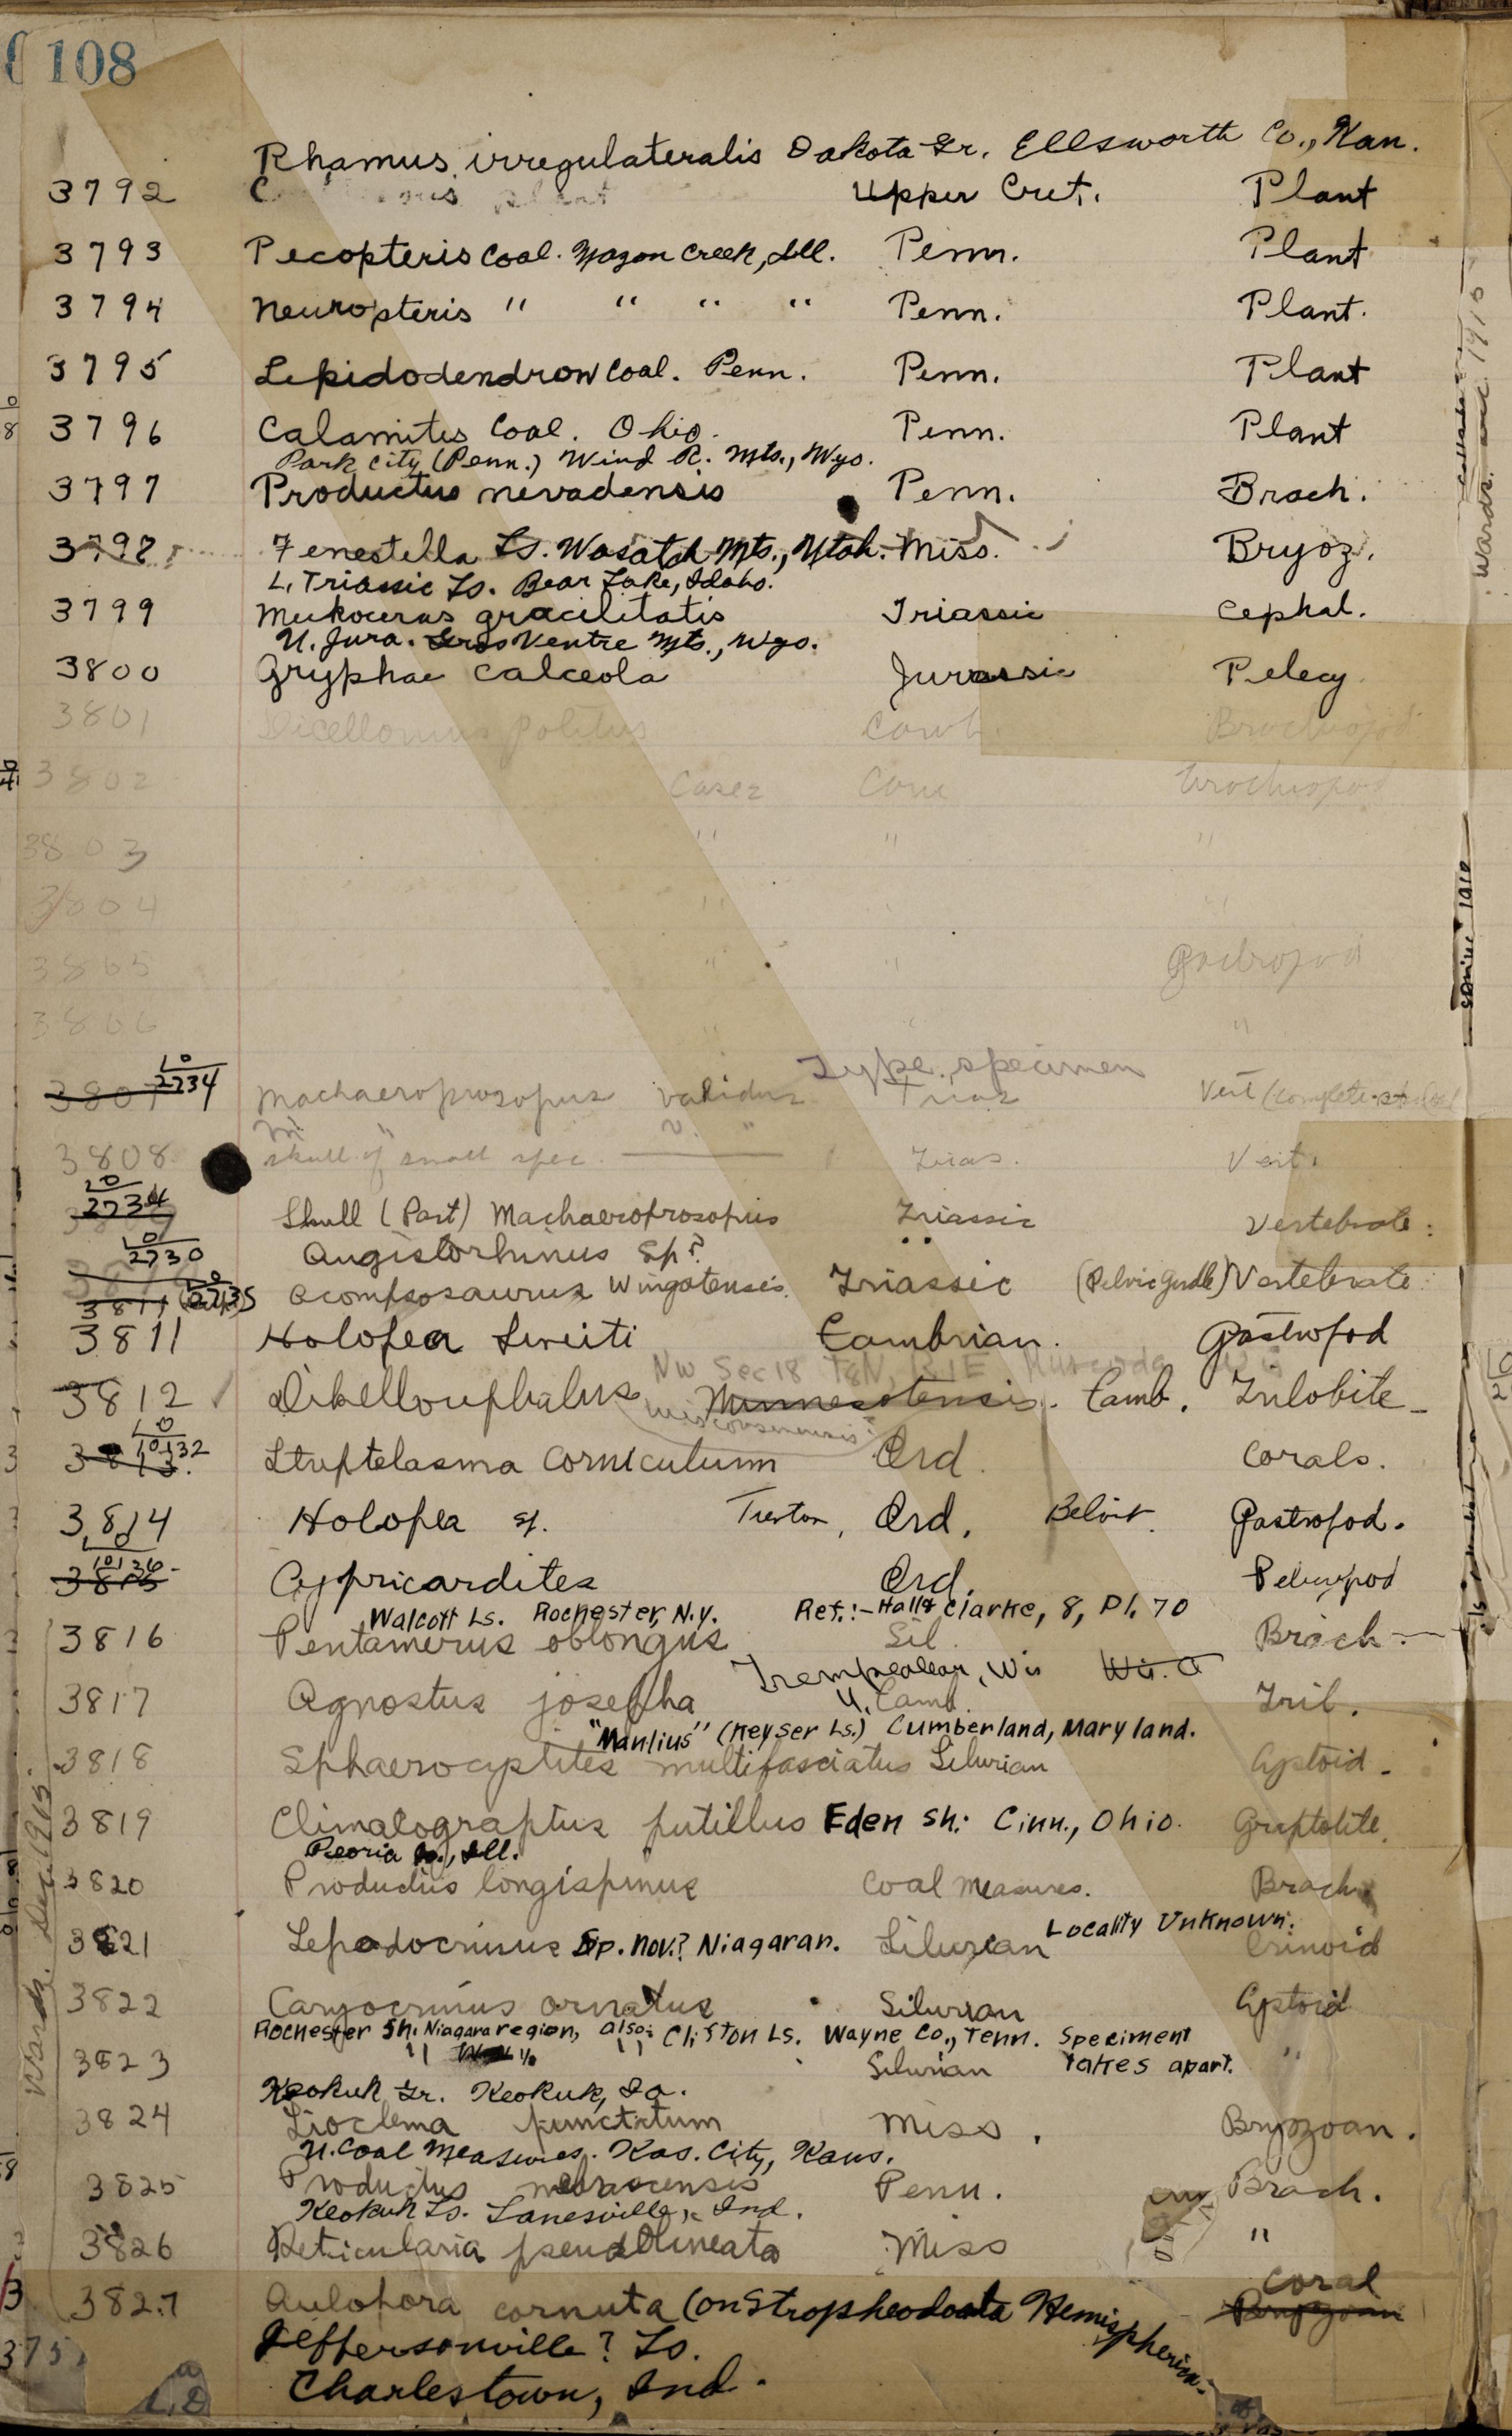 108
Rhamus irregulateralis Dakota Gr. Ellsworth Co., Kan.
3792 Upper Cret. Plant
3793 Pecopteris Coal. Mazon Creek, Ill. Penn. Plant
3794 Neuropteris " " " " Penn. Plant.
3795 Lepidodendron Coal. Penn. Penn. Plant
3796 Calamites Coal. Ohio. Penn. Plant
Park City (Penn.) Wind R. Mts., Wyo.
3797 Productus nevadensis Penn. Brach.
3798 Fenestella Ls. Wasatch Mts., Utah. Miss. Bryoz.
L. Triassic Ls. Bear Lake, Idaho.
3799 Meekoceras gracilitatis Triassic Cephal.
U. Jura. Gros Ventre Mts., Wyo.
3800 Gryphae calceola Jurassic Pelecy
3801 Dicellomus politus Camb. Brachiopod
3802 Brachiopod
3803 " " "
3804 " "
3805 " " Gastropod
3806 "
Type specimen
10
2234
3807 Machaeroprosopus validus Trias Vert
M " v. "
3808 skull of small spec. Trias. Vert.
10
2234 Skull (Part) Machaeroprosopus Triassic Vertebrate.
10
2230 Angistorhinus Sp?
3811 Acompsosaurus Wingatensis. Triassic (Pelvic Girdle) Vertebrate
3811 Holopea Sweiti Cambrian. Gastropod
NW Sec 18 T8N, R1E Muscoda Wis
3812 Dikellocephalus Minnesotensis. Camb. Trilobite
wisconsinensis?
10
10132
3813. Streptelasma corniculum Ord. Corals.
3814 Holopea sp. Trenton, Ord. Beloit. Gastropod.
10136
3815 Cypricardites Ord. Pelecypod
Walcott Ls. Rochester, N.Y. Ref.:- Hall & Clarke, 8, Pl. 70
3816 Pentamerus oblongus Sil. Brach
Trempealeau, Wis
3817 Agnostus josepha U. Camb. Tril.
"Manlius" (Keyser Ls.) Cumberland, Maryland.
3818 Sphaerocystites multifasciatus Silurian Cystoid.
3819 Climacograptus putillus Eden Sh. Cinn., Ohio. Graptolite.
Peoria Co., Ill.
3820 Productus longispinus Coal Measures. Brach.
Locality Unknown.
3821 Lepadocrinus Sp. nov.? Niagaran. Silurian Crinoid
3822 Caryocrinus ornatus Silurian Cystoid
Rochester Sh. Niagara region, also: Clifton Ls. Wayne Co., Tenn. Speciment
3823 " " Silurian takes apart. "
Keokuk Gr. Keokuk, Ia.
3824 Lioclema punctatum Miss. Bryozoan.
U. Coal Measures. Kas. City, Kans.
3825 Productus nebrascensis Penn. Brach.
Keokuk Ls. Lanesville, Ind.
3826 Reticularia pseudolineata Miss "
Coral
3827 Aulopora cornuta (on Stropheodonta Hemispherica. Bryozoan
Jeffersonville? Ls.
Charlestown, Ind.
Wards. Dec. 1915.